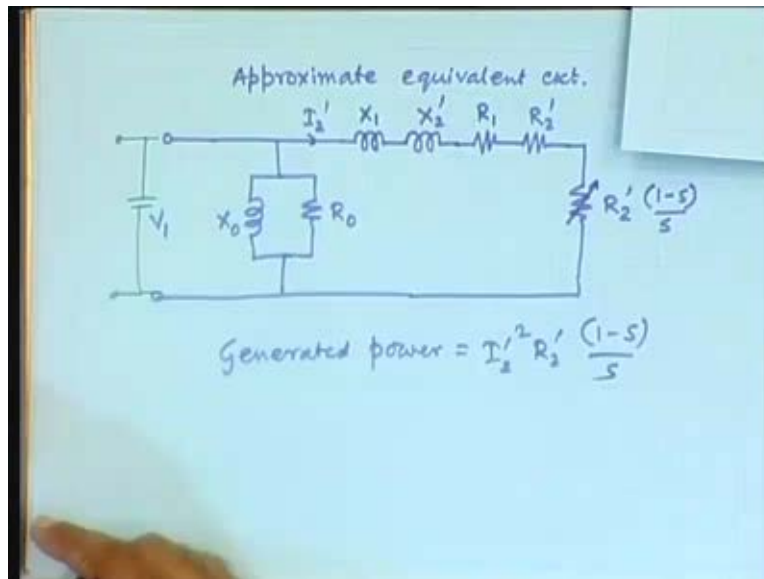 Approximate equivalent cxct.
I₂' X₁ X₂' R₁ R₂'
V₁ X₀ R₀ R₂' (1-s)/s
Generated power = I₂'² R₂' (1-s)/s